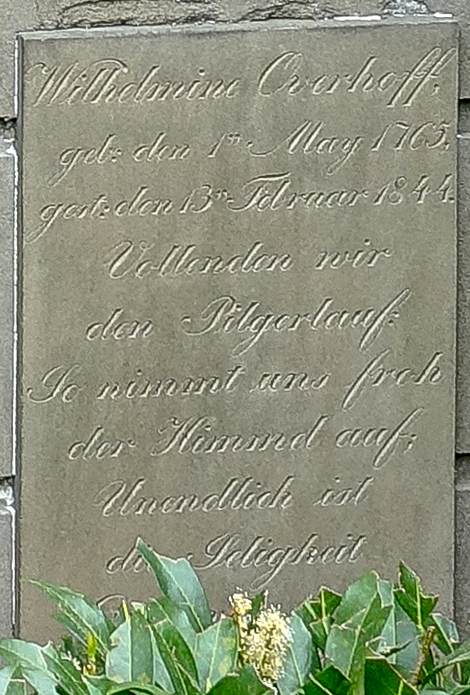 Wilhelmine Overhoff,
geb: den 1ten May 1765,
gest: den 13ten Februar 1844.
Vollenden wir
den Pilgerlauf:
So nimmt uns froh
der Himmel auf;
Unendlich ist
die Seligkeit